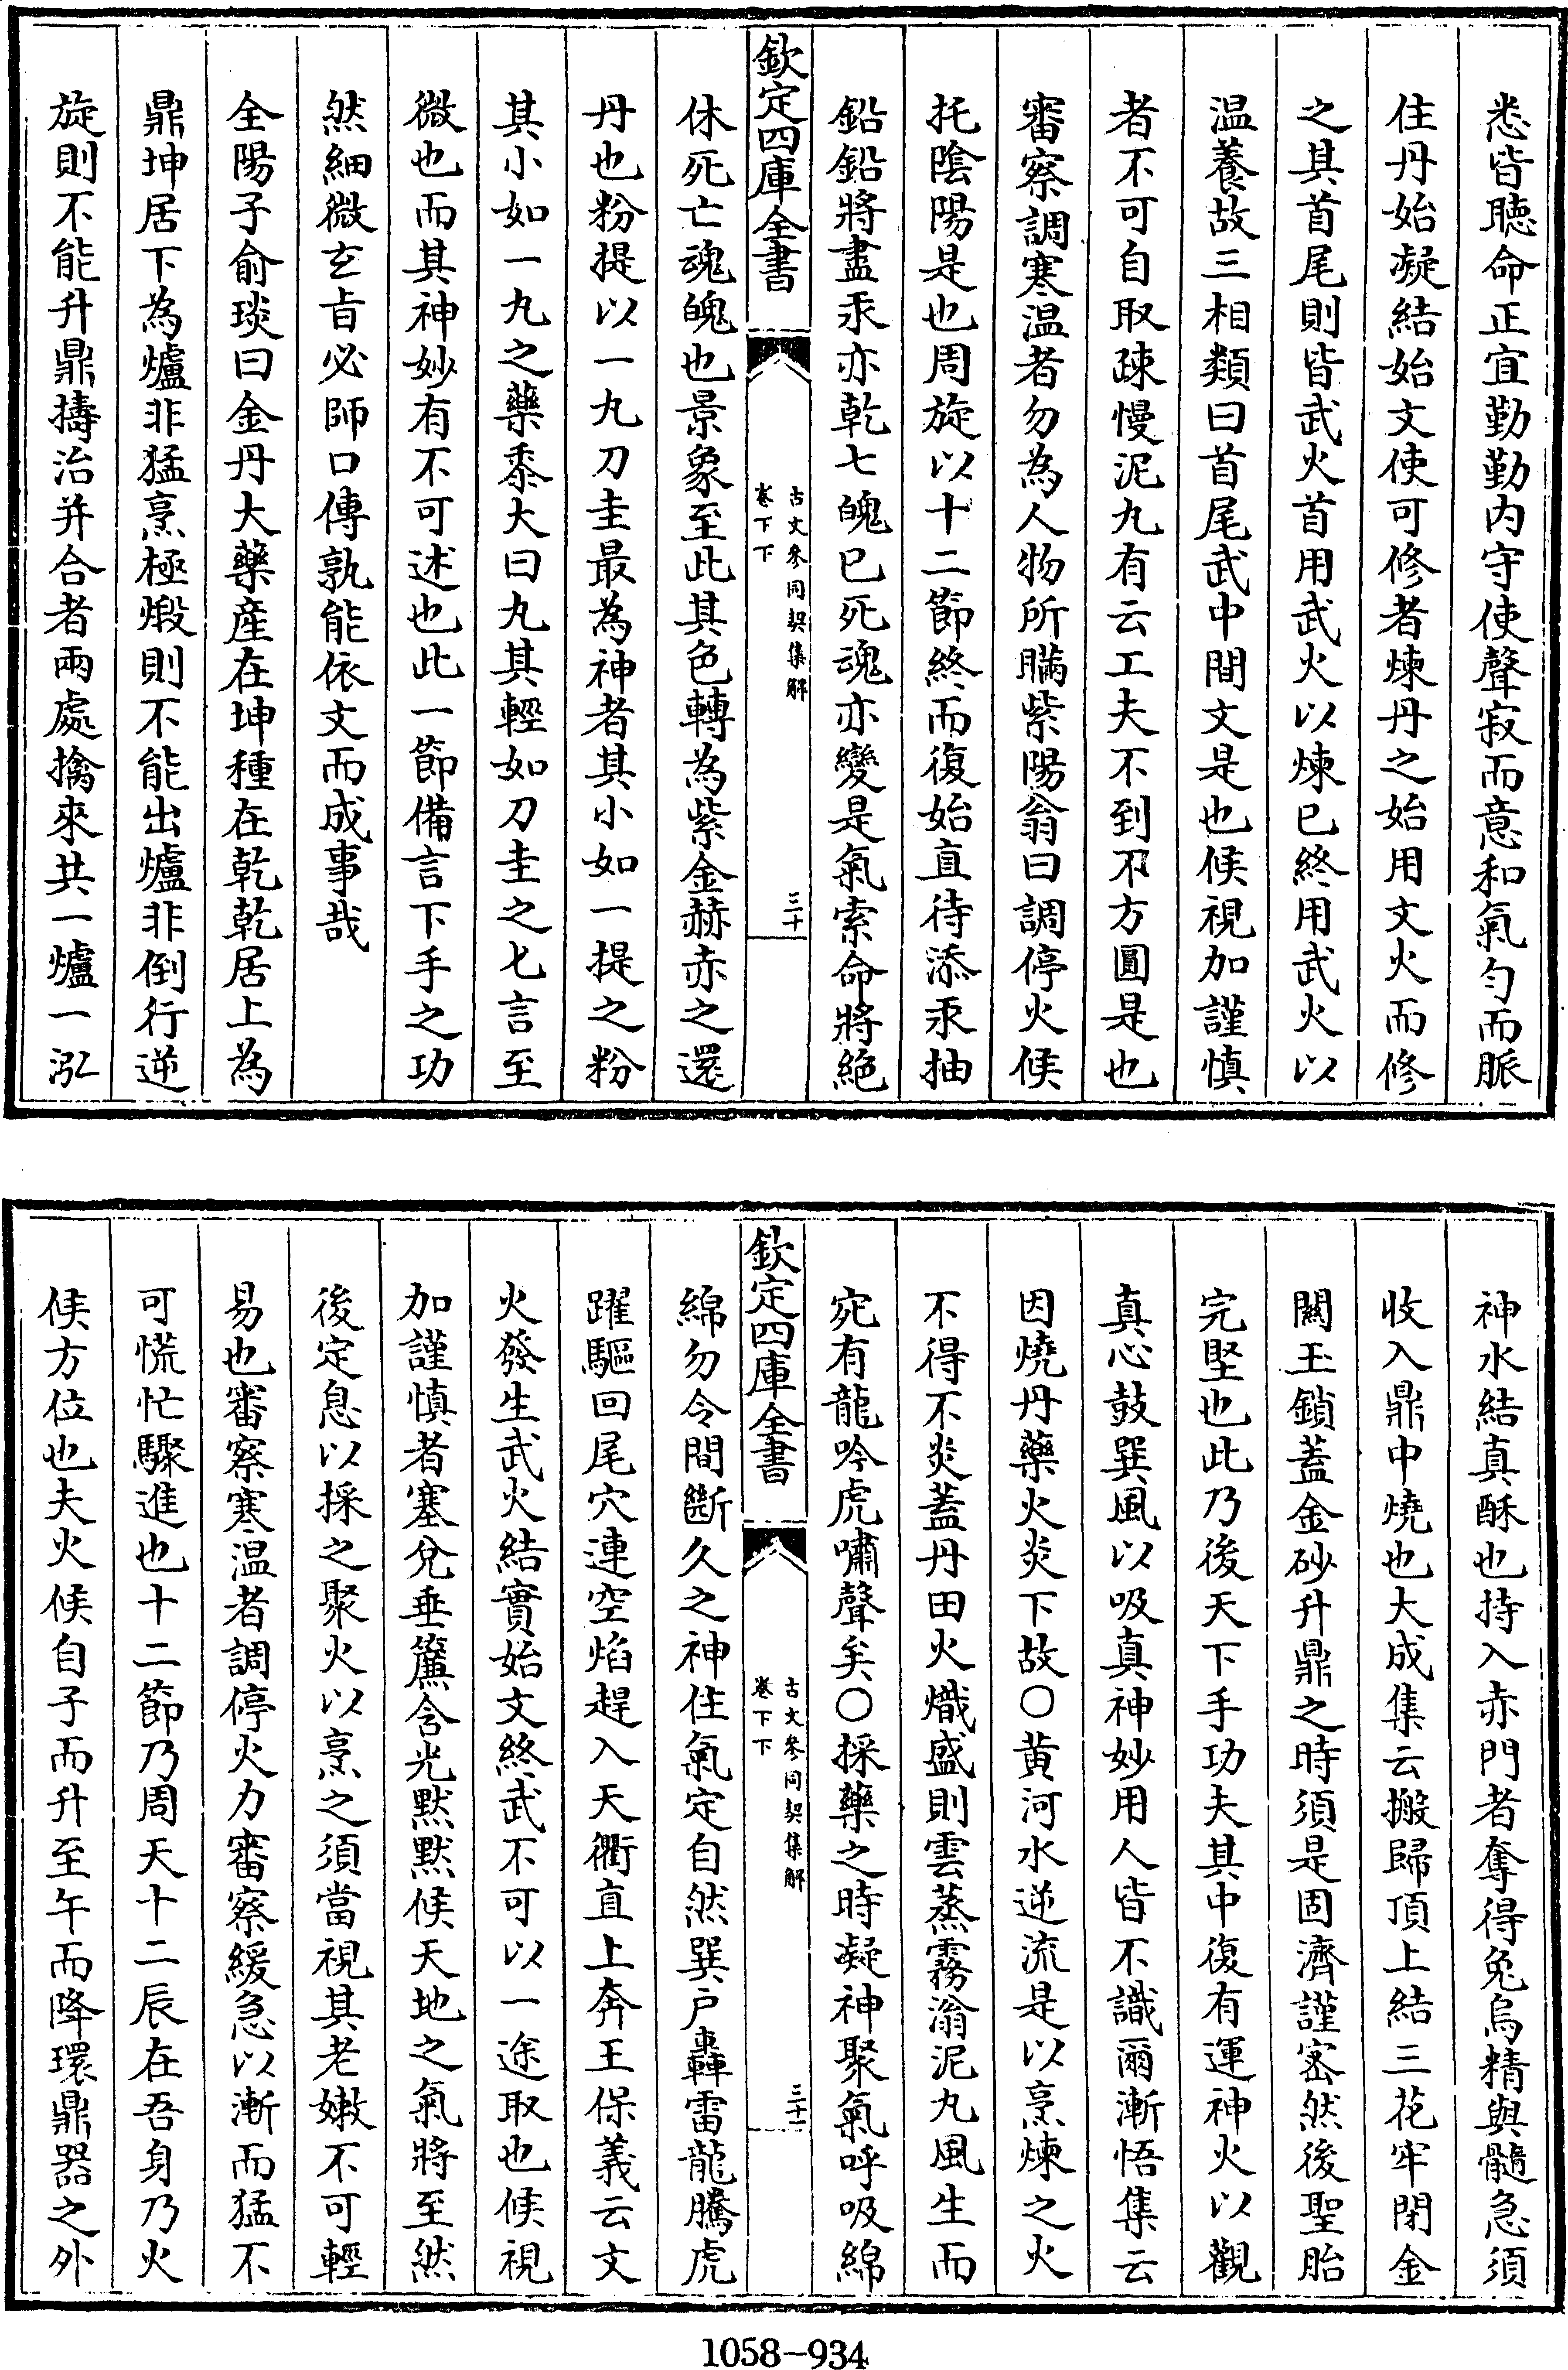 悉皆聽命正宜勤勤内守使聲寂而意和氣勻而脈
住丹始凝結始文使可修者煉丹之始用文火而修
之其首尾則皆武火首用武火以煉已終用武火以
温養故三相類曰首尾武中間文是也候視加謹慎
者不可自取疎慢泥九有云工夫不到不方圓是也
審察調寒温者勿為人物所瞞紫陽翁曰調停火候
托陰陽是也周旋以十二節終而復始直待添汞抽
鉛鉛將盡汞亦乾七魄已死魂亦變是氣索命將絶
欽定四庫全書
古文參同契集解
卷下下
三十
休死亡魂魄也景象至此其色轉為紫金赫赤之還
丹也粉提以一九刀圭最為神者其小如一提之粉
其小如一九之藥黍大曰九其輕如刀圭之七言至
微也而其神妙有不可述也此一節備言下手之功
然細微玄旨必師口傳孰能依文而成事哉
全陽子俞琰曰金丹大藥産在坤種在乾乾居上為
鼎坤居下為爐非猛烹極煅則不能出爐非倒行逆
旋則不能升鼎擣治并合者兩處擒來共一爐一泓
神水結真酥也持入赤門者奪得兔烏精與髓急須
收入鼎中燒也大成集云搬歸頂上結三花牢閉金
闗玉鎖蓋金砂升鼎之時須是固濟謹宻然後聖胎
完堅也此乃後天下手功夫其中復有運神火以觀
真心鼓巽風以吸真神妙用人皆不識爾漸悟集云
因燒丹藥火炎下故○黄河水逆流是以烹煉之火
不得不炎蓋丹田火熾盛則雲蒸霧滃泥丸風生而
宛有龍吟虎嘯聲矣○採藥之時凝神聚氣呼吸綿
欽定四庫全書
古文參同契集解
卷下下
三十一
綿勿令間斷久之神住氣定自然巽户轟雷龍騰虎
躍驅回尾穴連空焰趕入天衢直上奔王保義云文
火發生武火結實始文終武不可以一途取也候視
加謹慎者塞兌垂簾含光黙黙候天地之氣將至然
後定息以採之聚火以烹之須當視其老嫩不可輕
易也審察寒温者調停火力審察緩急以漸而猛不
可慌忙驟進也十二節乃周天十二辰在吾身乃火
候方位也夫火候自子而升至午而降環鼎器之外
1058-934